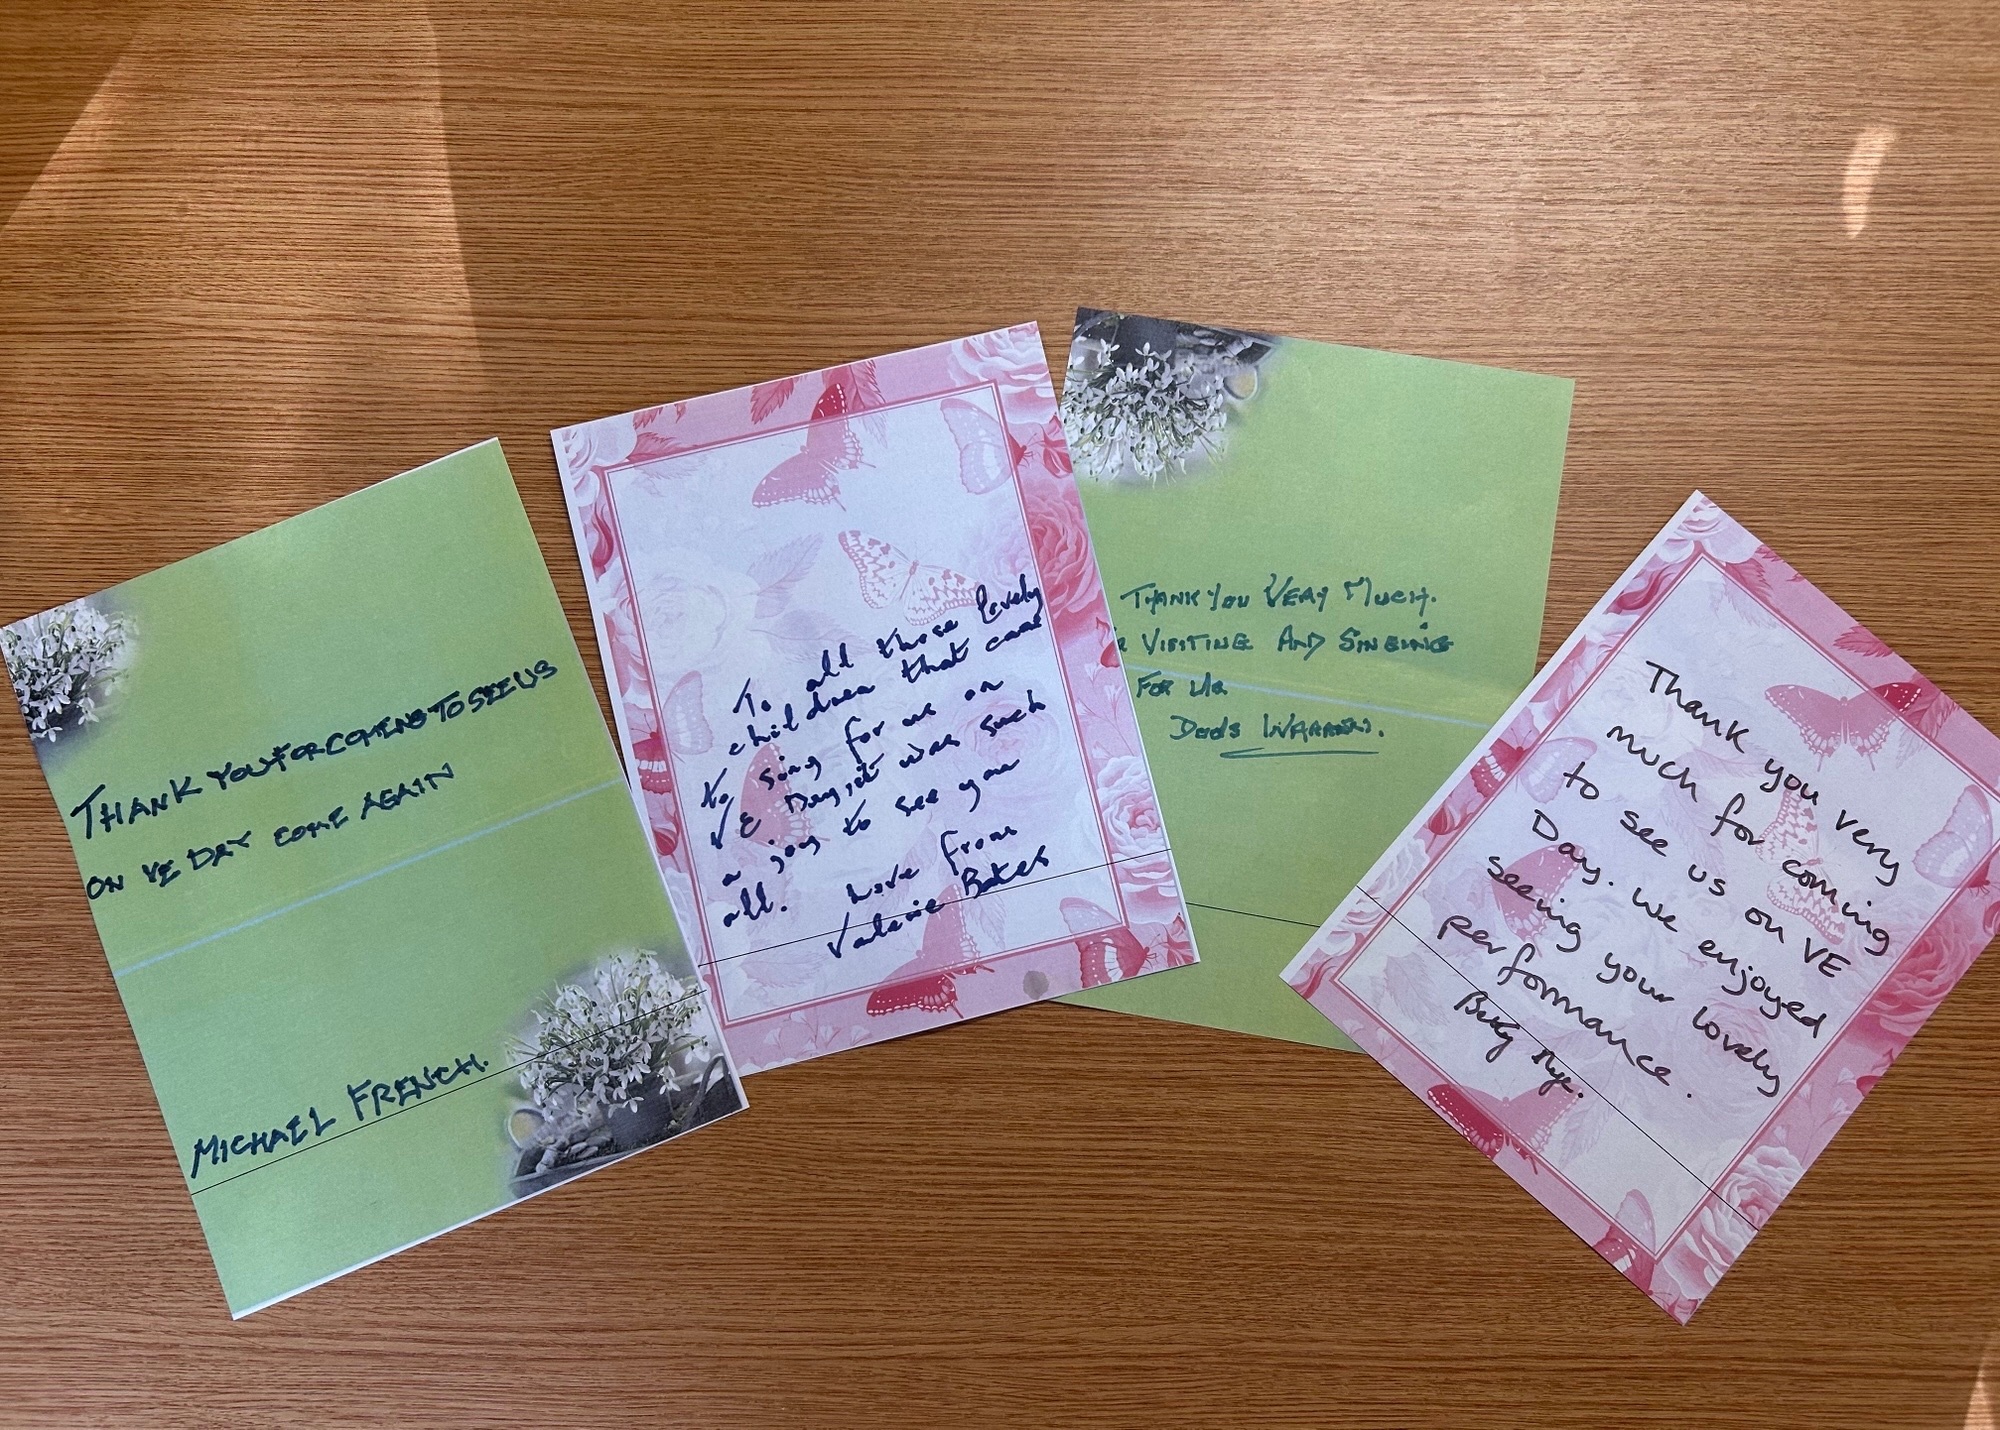 THANK YOU FOR COMING TO SEE US
ON VE DAY COME AGAIN
MICHAEL FRENCH.
To all those lovely
children that came
to sing for us on
VE Day, it was such
a joy to see you
all. Love from
Valerie Bates
THANK YOU VERY MUCH.
VISITING AND SINGING
FOR US
Thank you very
much for coming
to see us on VE
Day. We enjoyed
seeing your lovely
performance.